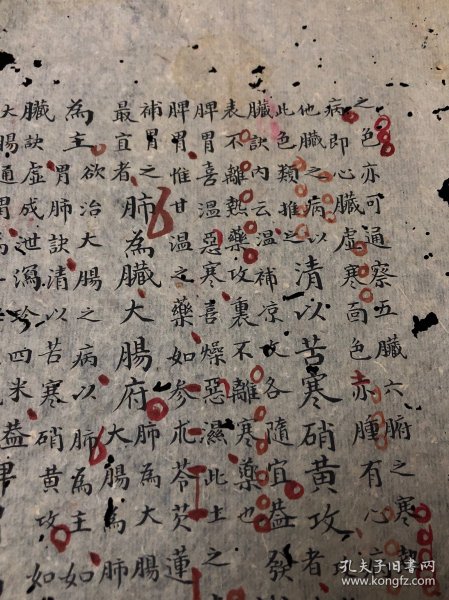 之色亦可通察五臟六腑之寒熱
病即心臟虛寒面色赤腫有心
他臟之病以
此色類推之
清以苦寒硝黃攻者
臟訣內云溫補凉攻各隨宜益發
表不離熱藥攻裏不離寒藥也
脾胃喜溫惡寒喜燥惡濕此土之
脾胃惟甘溫之藥如參朮苓芡蓮
補胃之
最宜者
肺為臟大腸府
肺為大腸
大腸為肺
為主
欲治大腸之病以肺為主如
胃肺訣清以苦寒硝黃攻如
臟訣虛成泄瀉 四米益
大腸通胃
孔夫子旧书网
kongfz.com